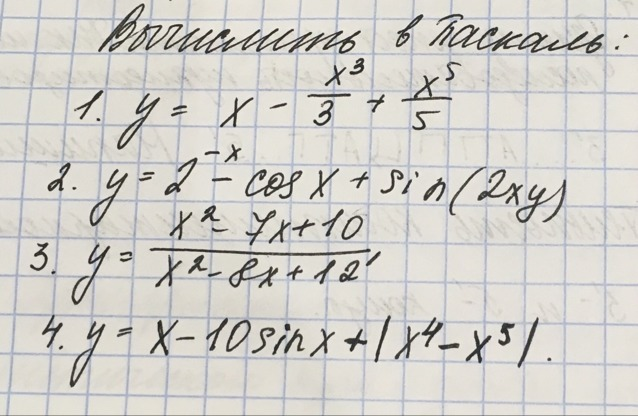 Вычислить в Паскаль:
1. y = x - x³/3 + x⁵/5
2. y = 2⁻ˣ - cos x + sin(2xy)
3. y = (x² - 7x + 10)/(x² - 8x + 12)'
4. y = x - 10 sin x + |x⁴ - x⁵|.